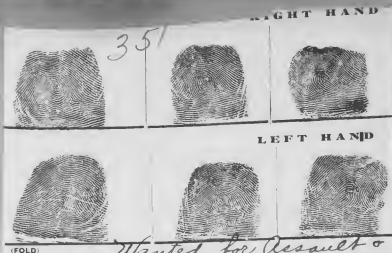 RIGHT HAND
35
LEFT HAND
(FOLD)
Wanted for Assault &